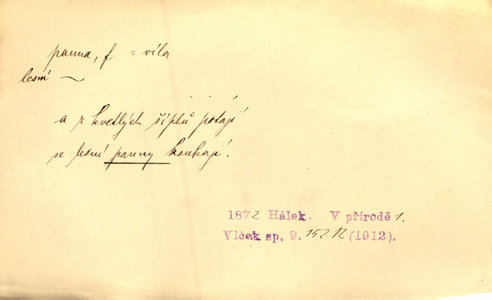 panna, f. = víla
lesní ~
a z kvetlých šípků potají
se lesní panny koukají.
1872 Hálek. V přírodě 1.
Vlček sp. 9. 152.12 (1912).